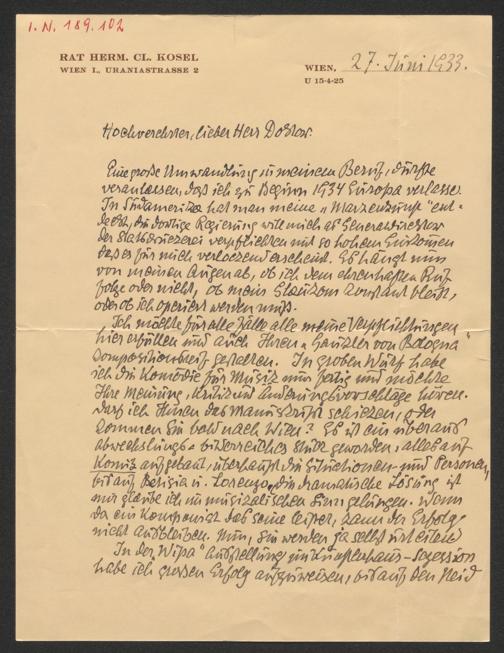 I.N. 189.102
RAT HERM. CL. KOSEL
WIEN I., URANIASTRASSE 2
WIEN, 27. Juni 1933.
U 15-4-25
Hochverehrter, lieber Herr Doktor.
Eine große Umwandlung in meinem Beruf, dürfte
veranlassen, daß ich zu Beginn 1934 Europa verlasse.
In Südamerika hat man meine „Markenkunst" ent-
deckt, die dortige Regierung will mich als Generaldirektor
der Staatsdruckerei verpflichten mit so hohem Einkommen
daß es für mich verlockend erscheint. Es hängt nun
von meinen Augen ab, ob ich dem ehrenhaften Ruf
folge oder nicht, ob mein Glaukom konstant bleibt,
oder ob ich operiert werden muß.
Ich möchte für alle Fälle alle meine Verpflichtungen
hier erfüllen und auch Ihren „Gaukler von Bologna"
kompositionsreif gestalten. In großem Wurf habe
ich die Komödie für Musik nun fertig und möchte
Ihre Meinung, Kritik und Änderungsvorschläge hören.
Darf ich Ihnen das Manuskript schicken, oder
kommen Sie bald nach Wien? Es ist ein überaus
abwechslungs- bilderreiches Stück geworden, alles auf
Komik aufgebaut, überhaupt die Situationen und Personen,
bis auf Letizia u. Lorenzo, die dramatische Lösung ist
mir glaube ich im musikalischen Sinn gelungen. Wenn
da ein Komponist das seine leistet, kann der Erfolg
nicht ausbleiben. Nun, Sie werden ja selbst urteilen
In der „Wipa" Ausstellung im Künstlerhaus – Sezession
habe ich grossen Erfolg aufzuweisen, bis auf den Neid